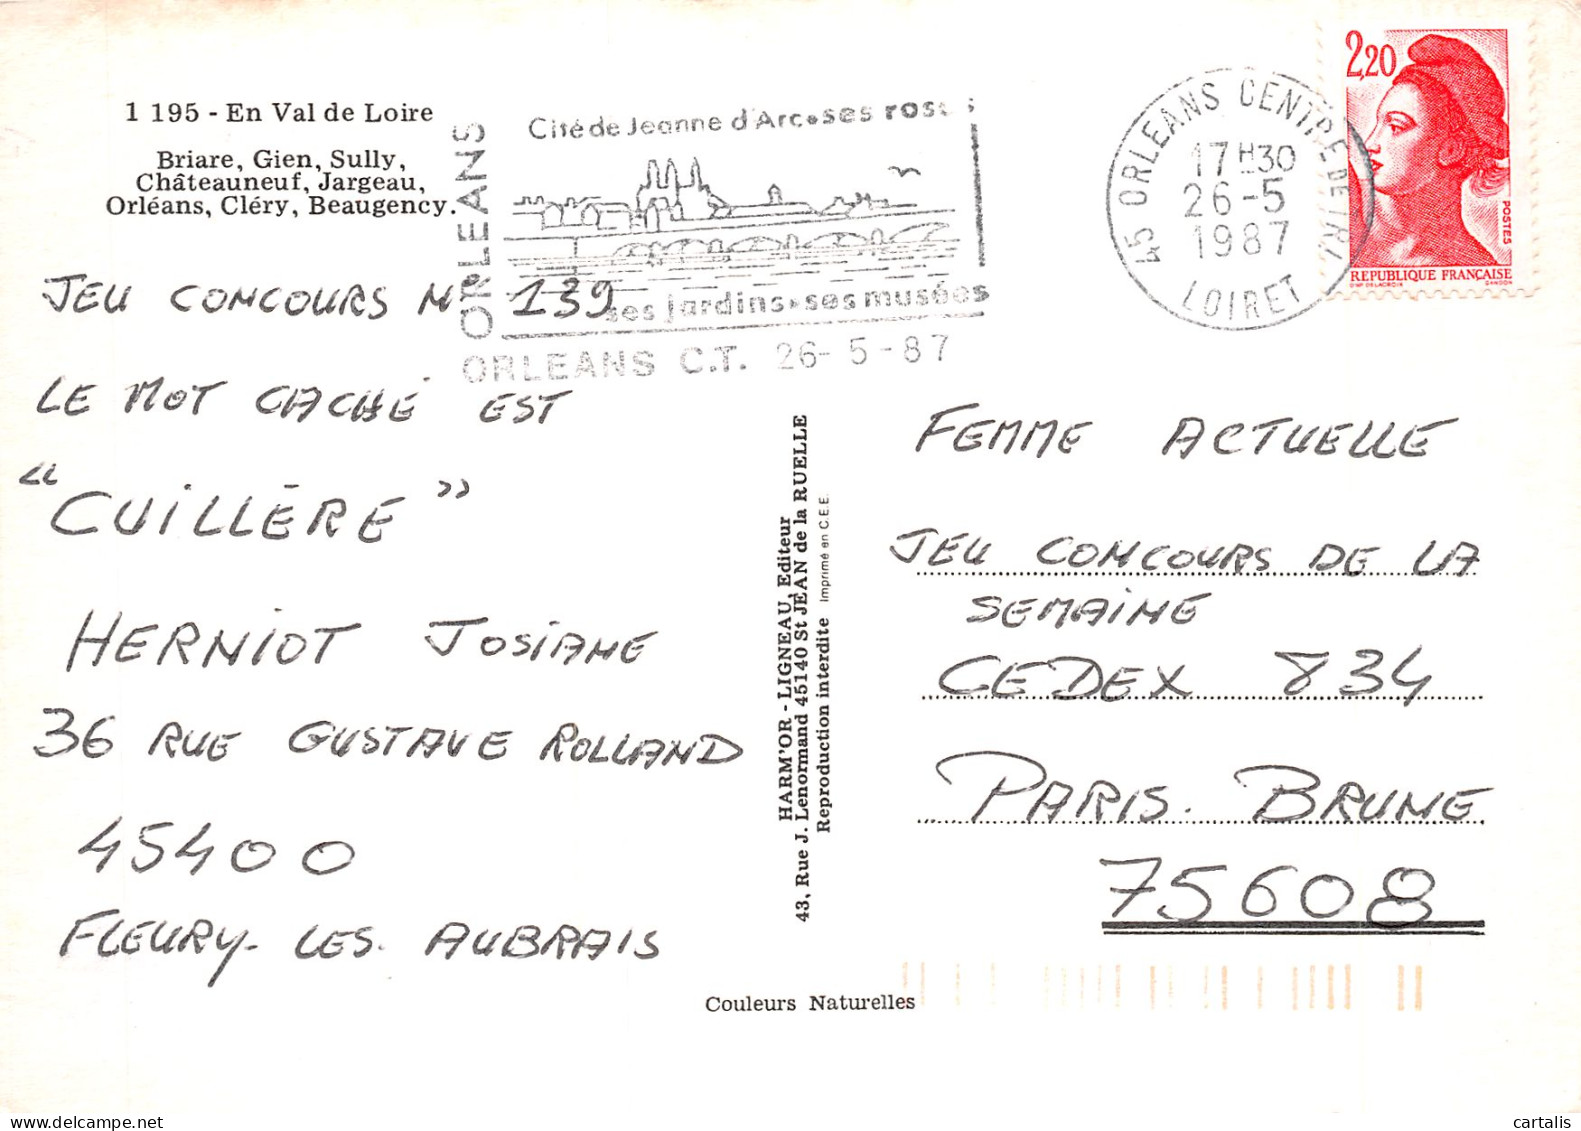 1 195 - En Val de Loire
Briare, Gien, Sully,
Châteauneuf, Jargeau,
Orléans, Cléry, Beaugency.
ORLEANS
Cité de Jeanne d'Arc • ses roses
ses jardins • ses musées
ORLEANS C.T. 26-5-87
45 ORLEANS CENTRE DE TRI
17H30
26-5
1987
LOIRET
2,20
POSTES
REPUBLIQUE FRANÇAISE
D'AP. DELACROIX GANDON
JEU CONCOURS N° 139
LE MOT CACHÉ EST
"CUILLÈRE"
HERNIOT JOSIANE
36 RUE GUSTAVE ROLLAND
45400
FLEURY-LES-AUBRAIS
HARM'OR - LIGNEAU, Editeur
43, Rue J. Lenormand 45140 St JEAN de la RUELLE
Reproduction interdite Imprimé en C.E.E.
FEMME ACTUELLE
JEU CONCOURS DE LA
SEMAINE
CEDEX 834
PARIS-BRUNE
75608
Couleurs Naturelles
cartalis
www.delcampe.net